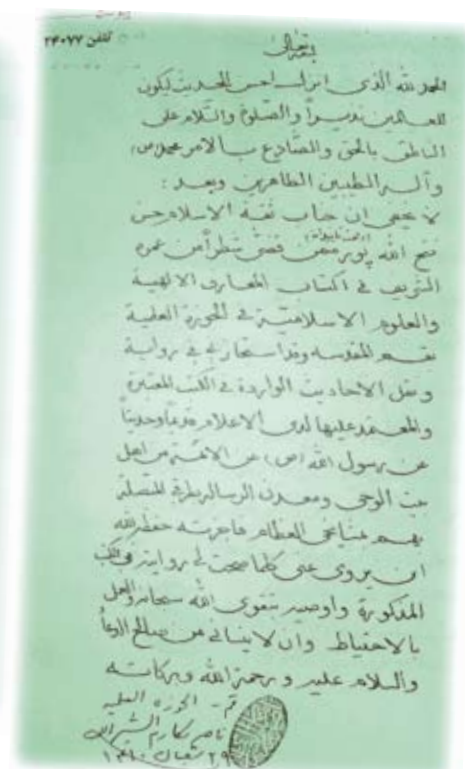 تلفن ۲۴۰۷۷
بسمه تعالی
الحمد لله الذی انزل احسن الحدیث لیکون
للعالمین نذیراً والصلوة والسلام علی
الناطق بالحق والصادع بالامر محمد (ص)
وآله الطیبین الطاهرین وبعد :
لا یخفی ان جناب ثقة الاسلام حسن
فتح الله پور ممن قضی شطراً من عمره
الشریف فی اکتساب المعارف الالهیة
والعلوم الاسلامیة فی الحوزة العلمیة
بقم المقدسه وقد استجازنی فی روایة
ونقل الاحادیث الواردة فی الکتب المعتبرة
والمعتمد علیها لدی الاعلام قدیماً وحدیثاً
عن رسول الله (ص) عن الائمة من اهل
بیت الوحی ومعدن الرسالة بطرقی المتصلة
بهم عن مشایخی العظام فاجزته حفظه الله
ان یروی عنی کلما صحت لی روایته فی الکتب
المذکورة واوصیه بتقوی الله سبحانه والعمل
بالاحتیاط وان لا ینسانی من صالح الدعاء
والسلام علیه ورحمة الله وبرکاته
قم - الحوزة العلمیه
ناصر مکارم الشیرازی
۲۹ شعبان ۱۴۱۰